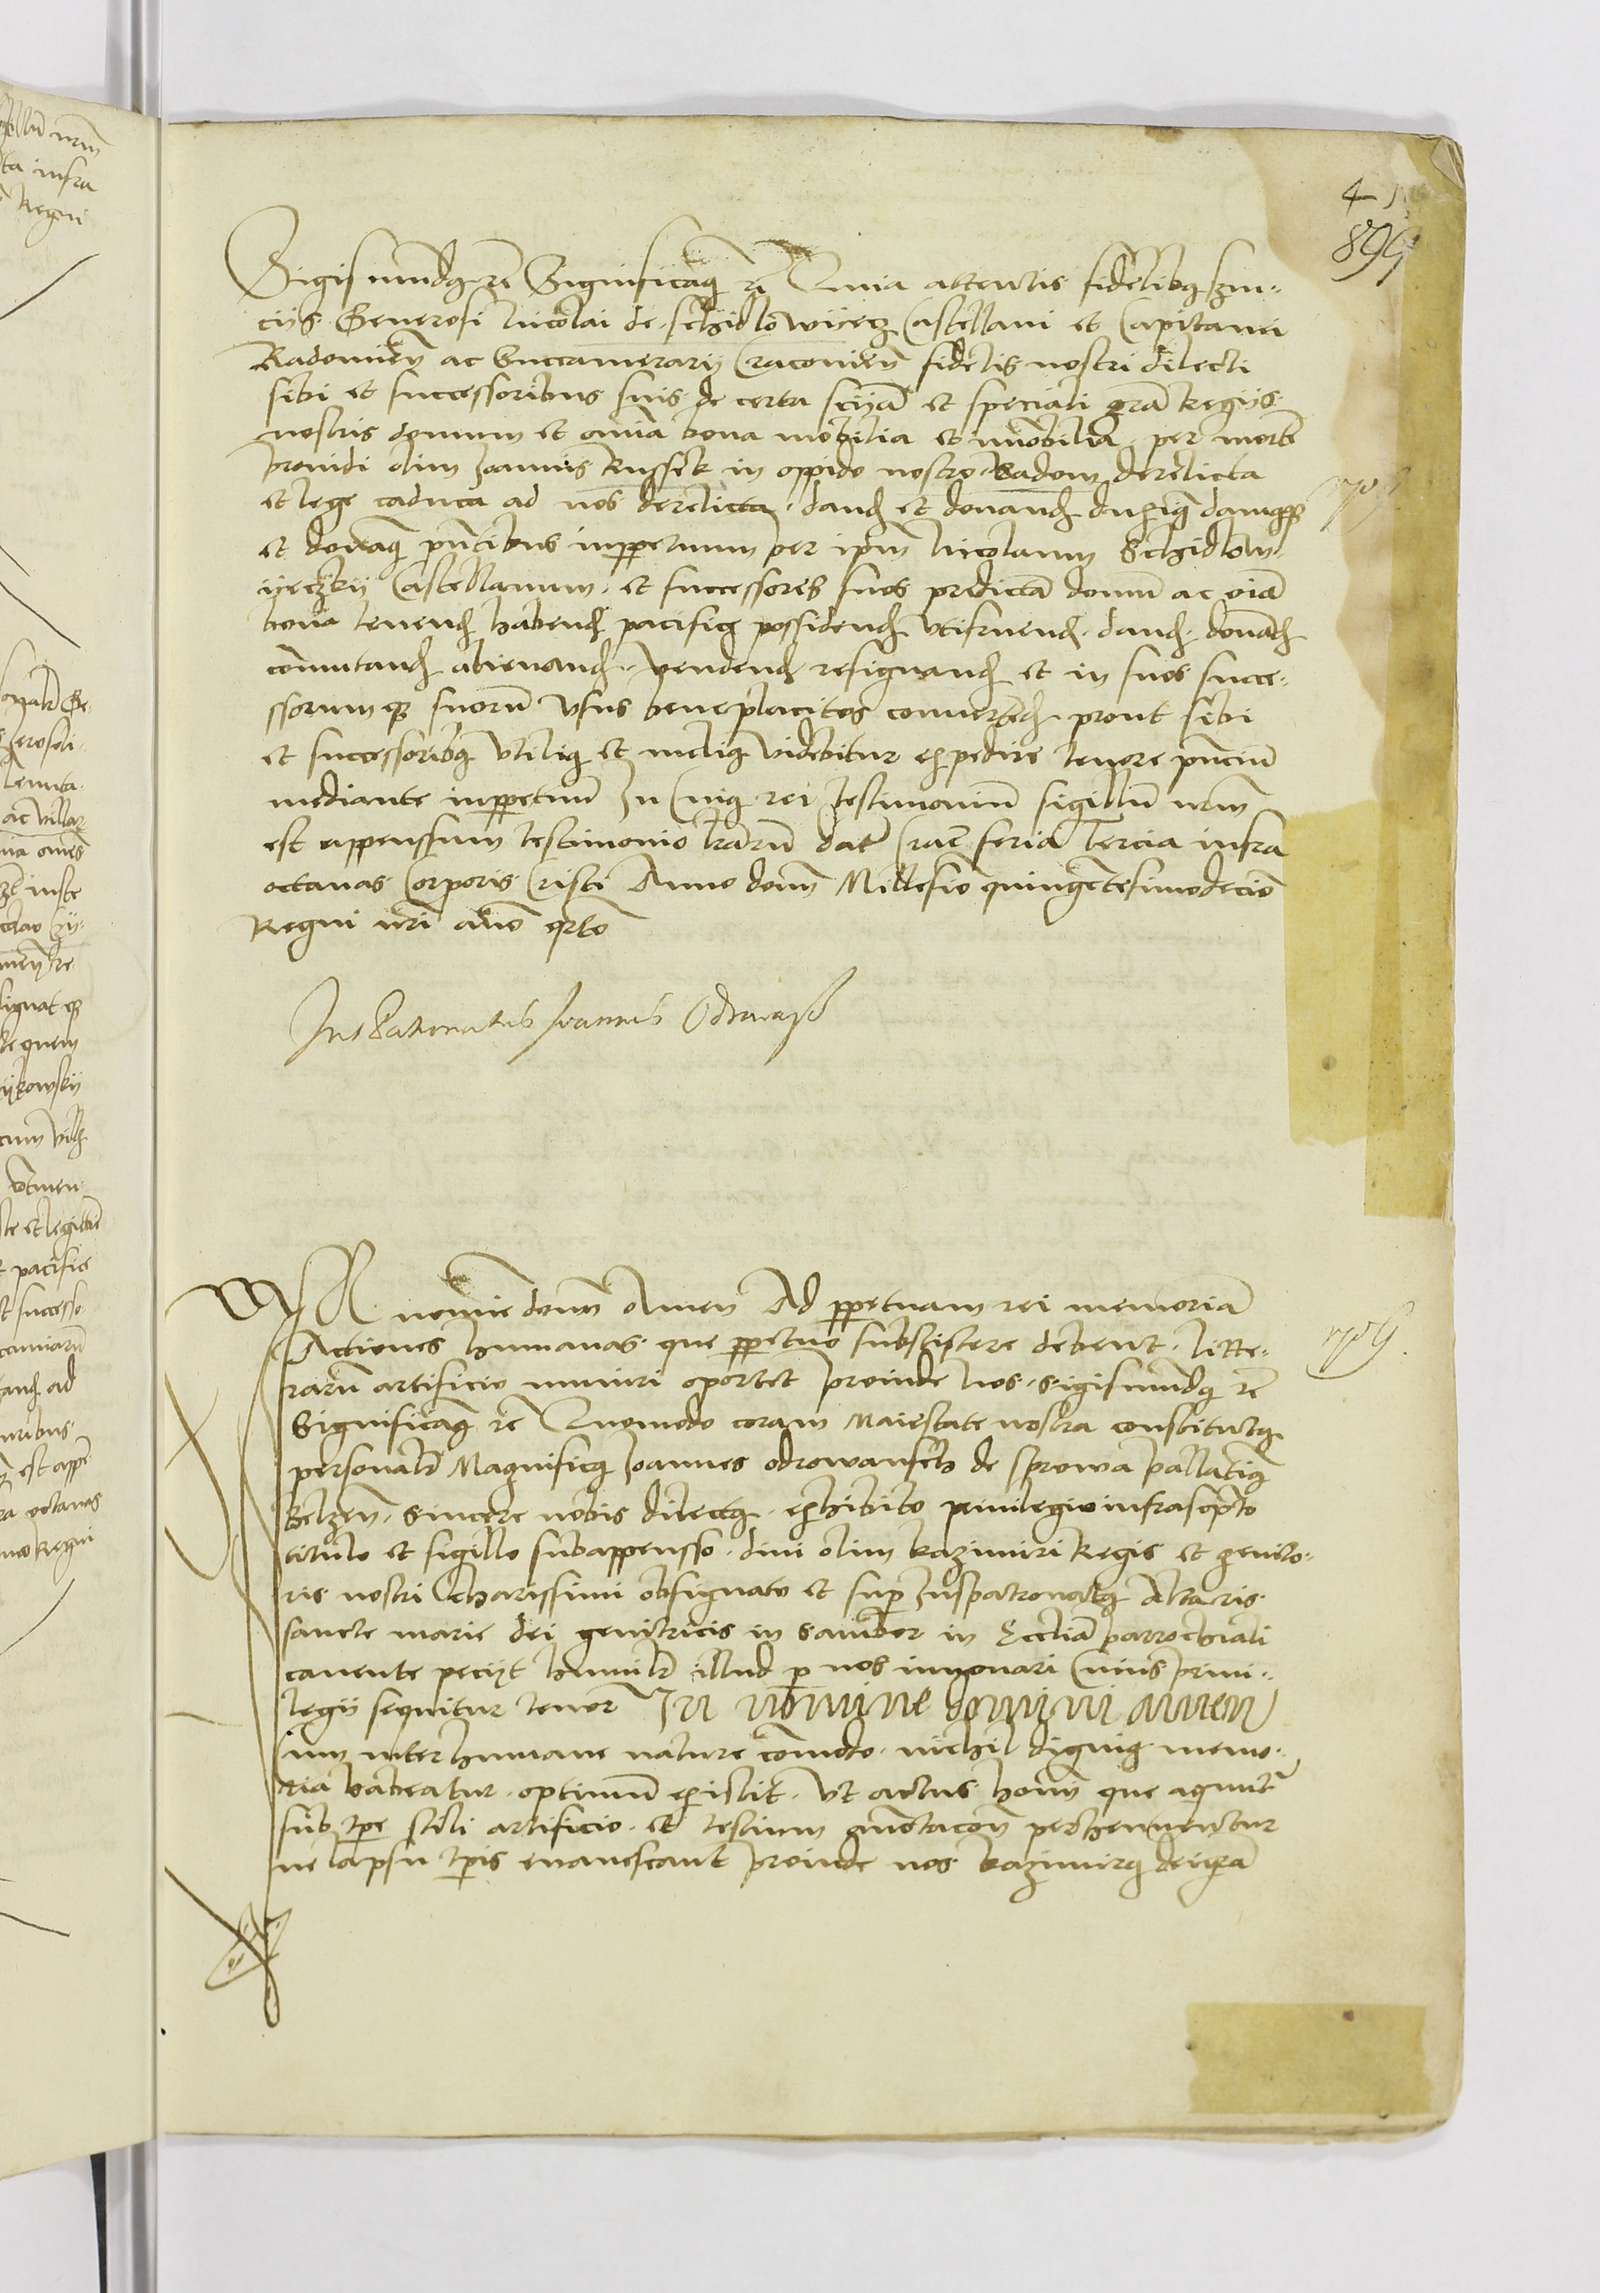 Sigismundus rc Significamus rc Quia attentis fidelibus servi-
ciis Generosi Nicolai de schidlowijecz Castellani et Capitanei
Radomien ac Succamerarij Cracovien fidelis nostri dilecti
sibi et successoribus suis de certa sciĩa et speciali grã Regijs
nostris domum et omĩa bona mobilia et immobilia per mortẽ
providi olim Joannis Russek in oppido nostro Radom derelicta
et lege caduca ad nos derelicta dand et donand duximus damusque
et donamus pñtibus inperpetuum per ipm Nicolaum Schidlow
ijeczkij Castellanum et successores suos predictã domũ ac oĩa
bona tenend habend pacifice possidend utifruend dand donãd
comutand alienand vendend resignand et in suos succe-
ssorumque suorũ usus beneplacitos convertẽd prout sibi
et successoribus utilius et melius videbitur expedire tenore pñciũ
mediante inperpetuũ In Cuius rei testimoniũ sigillũ nrm
est appenssum testimonio lrarũ Datũ Crac feria tercia infra
octavas Corporis Cristi Anno domi Millesio quingẽtesimodecio
Regni nri ãno qrto
Jus Patronatus Joannis Odrowasz
In noĩe domi Amen Ad perpetuam rei memoriã
Actiones humanas que perpetuo subsistere debent litte-
rarũ artificio muniri oportet Proinde Nos Sigismundus rc
Significamus rc Quomodo coram Maiestate nostra constitutus
personalr Magnificus Joannes odrowansch de sprowa Pallatinus
Belzen Sincere nobis dilectus exhibito privilegio infrascpto
titulo et sigillo subappensso divi olim kazimiri Regis et genito-
ris nostri charissimi obsignato et sup Juspatronatus Altaris
sancte marie dei genitricis in Sambor in Eccliã parrochiali
canente peciyt humilr illud p nos innovari Cuius privi-
legij sequitur tenor In nomine domini amen
Cum inter humane nature cõmodo nichil dignius memo-
ria habeatur optimũ existit ut actus homi que agunt
sub tpe stili artificio et testium anotacõn perhennentur
ne lapsu tpis evanescant Proinde nos kazimirus dei grã